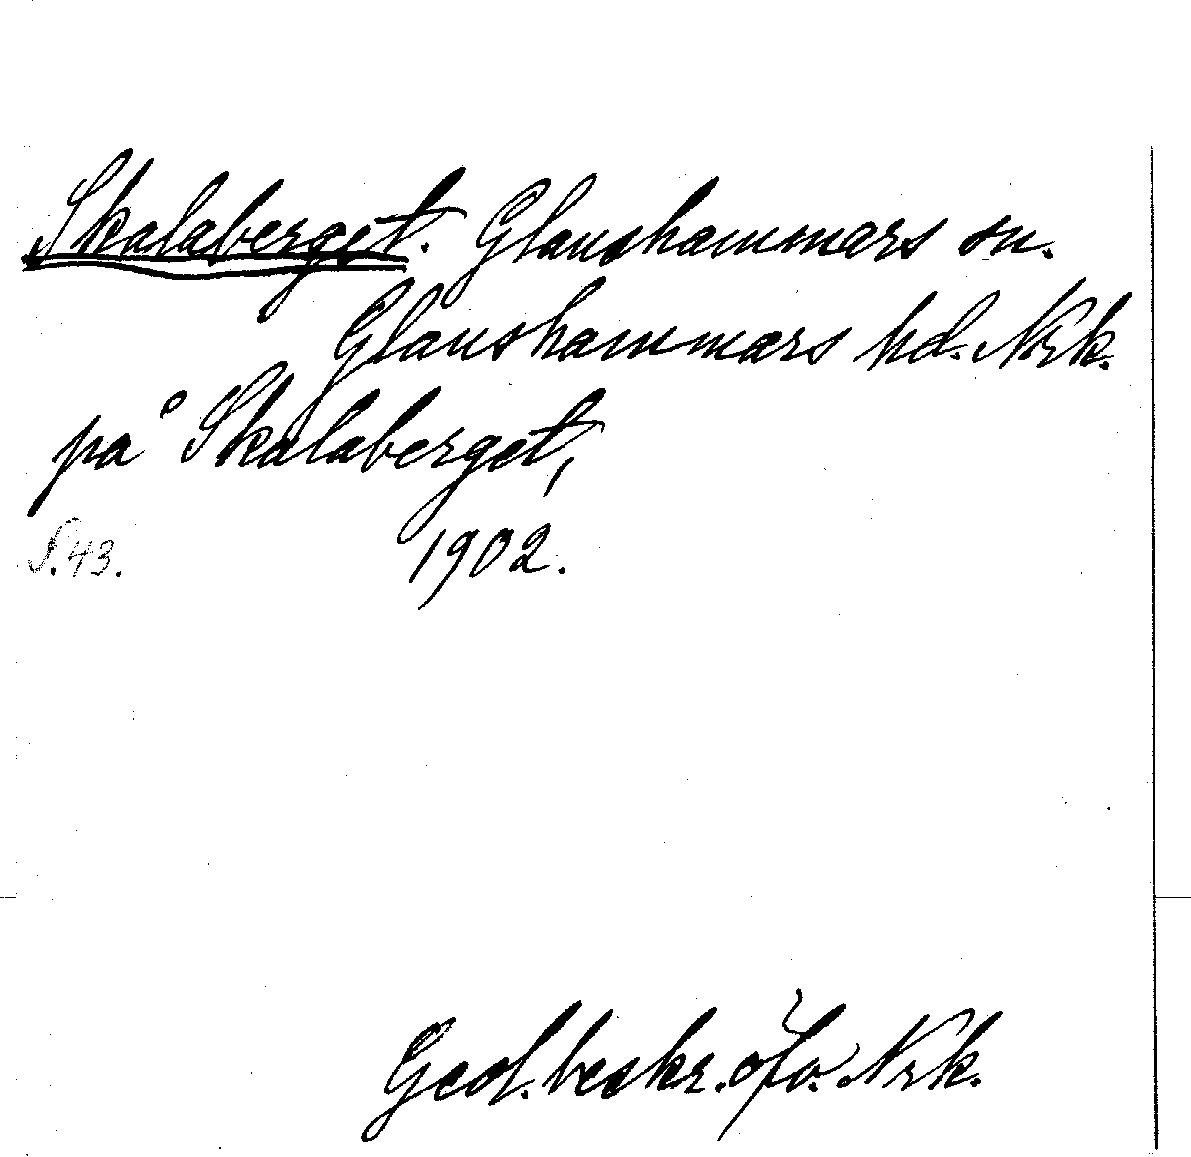 Skalaberget. Glanshammars sn.
Glanshammars hd. Nrk.
på Skalaberget,
S. 43. 1902.
Geol. beskr. öfv. Nrk.